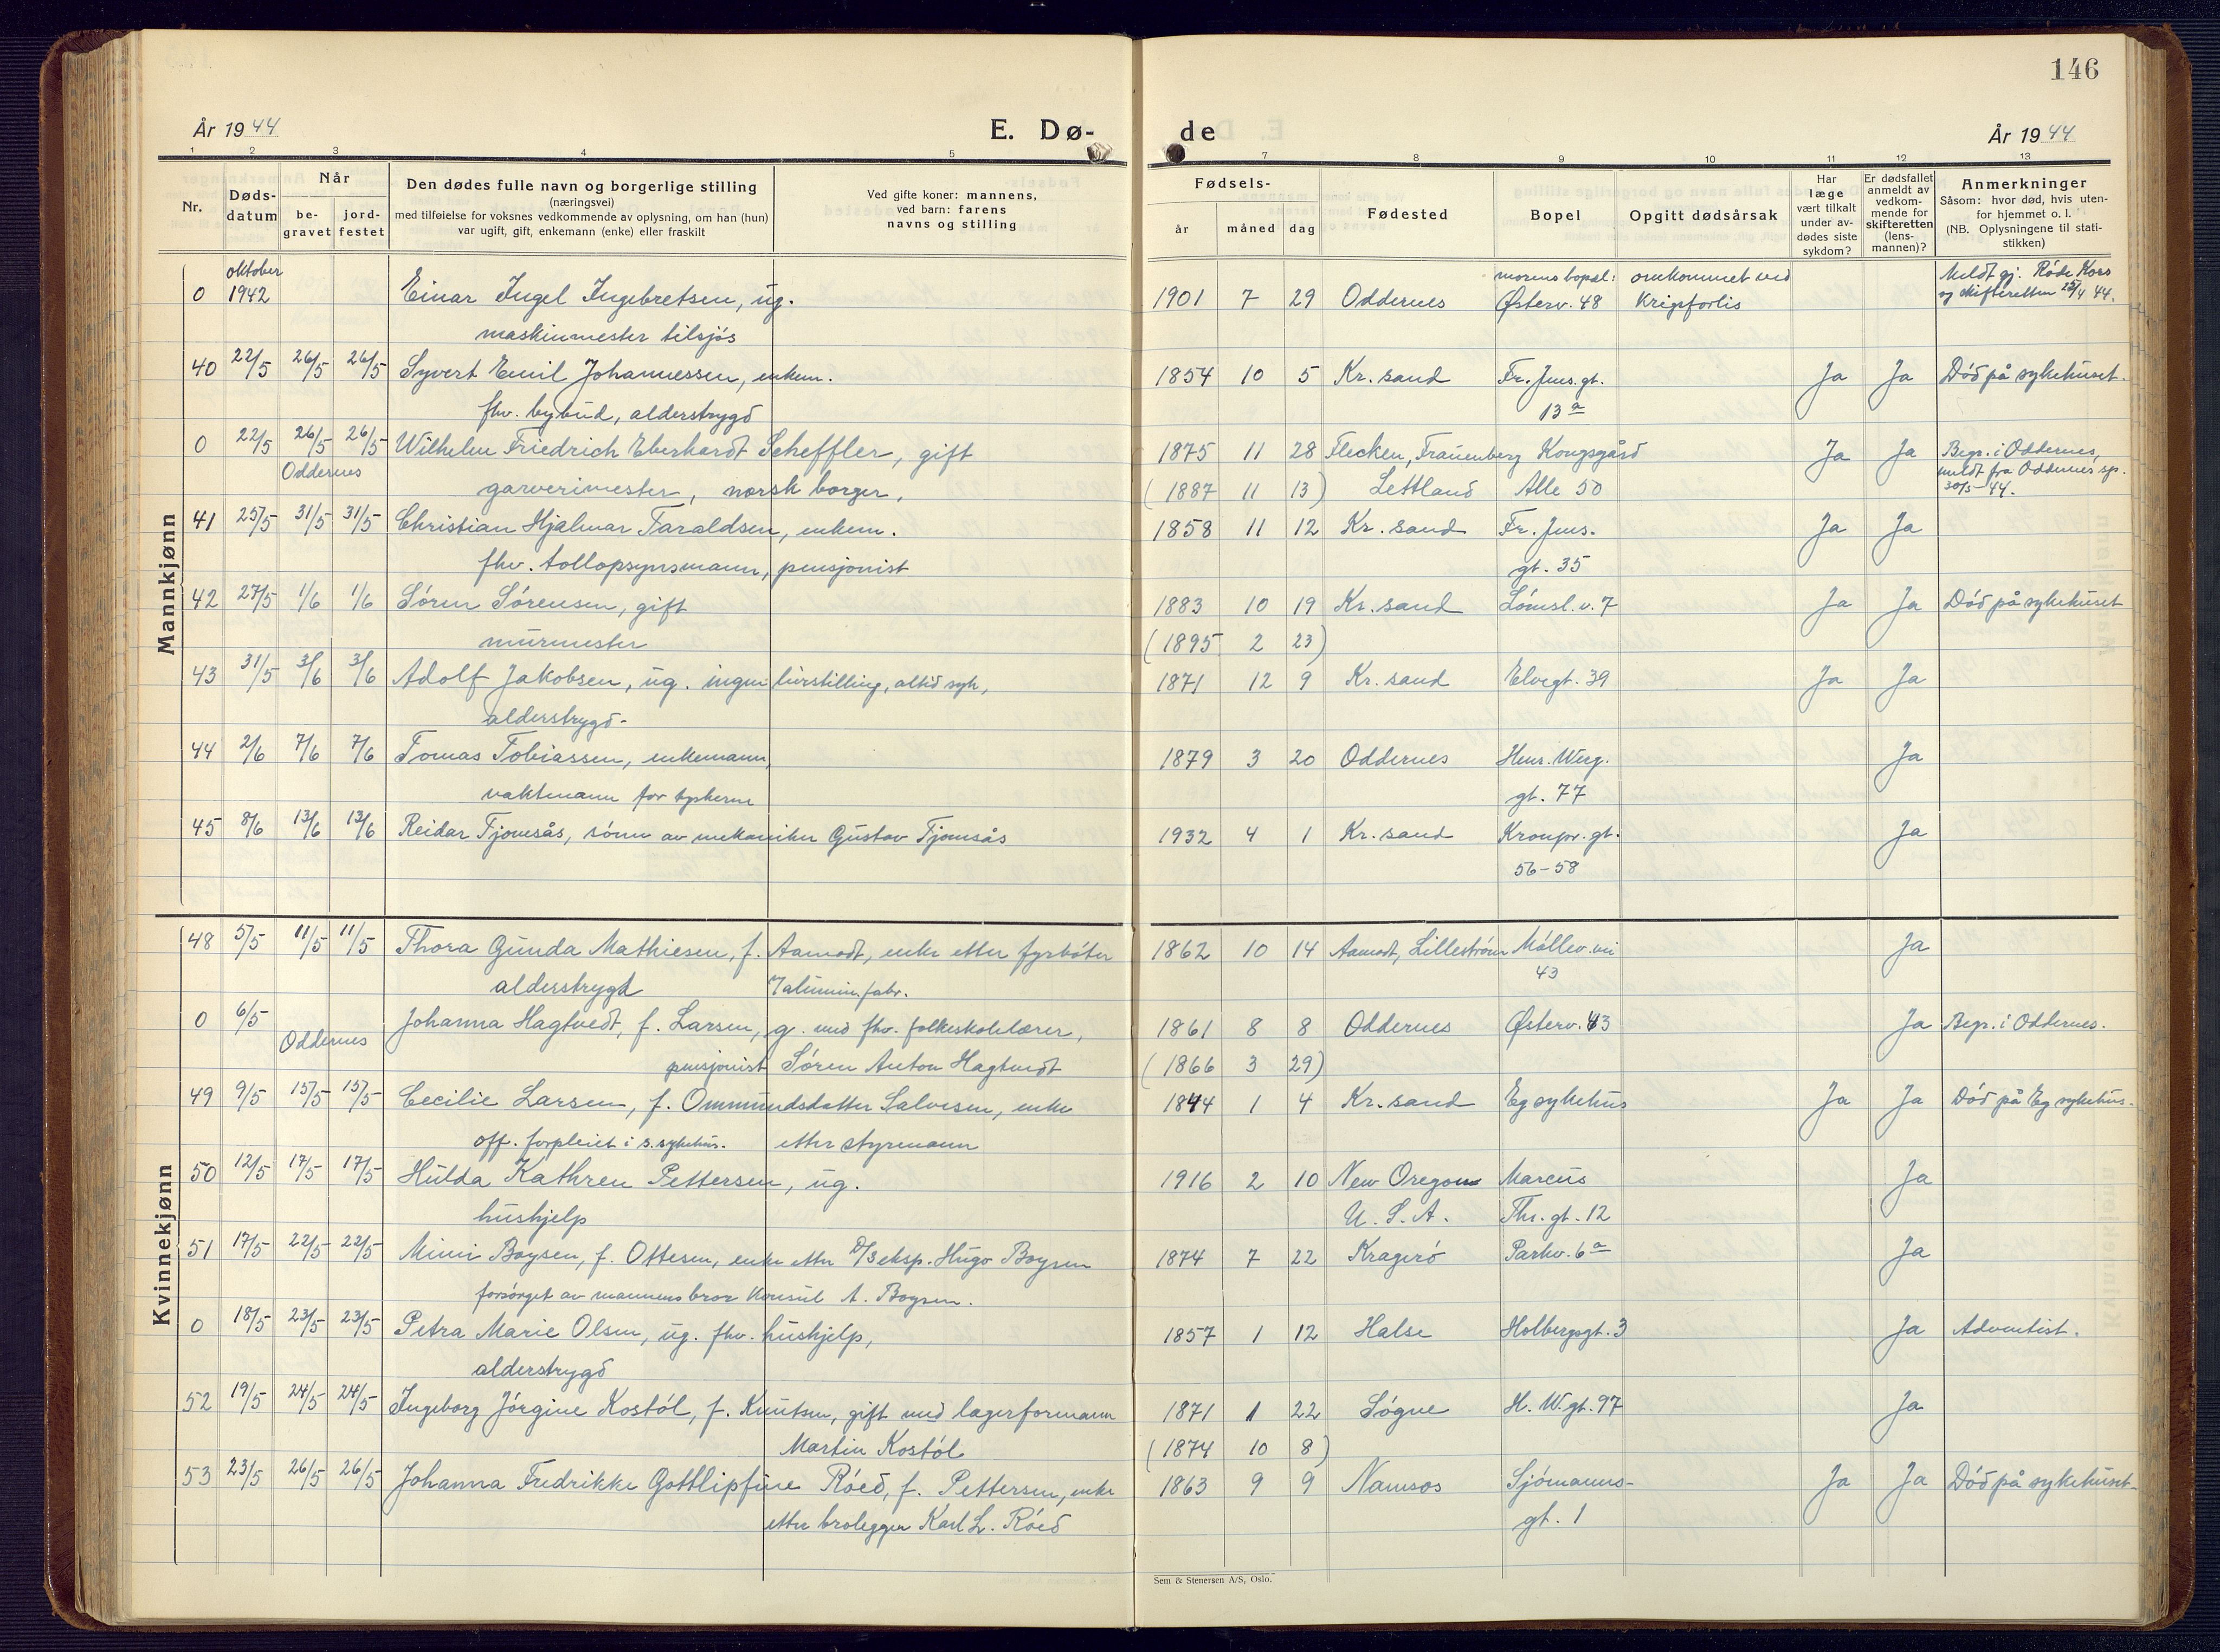 146
År 1944 E. Dø- de År 1944
1 2 3 4 5 7 8 9 10 11 12 13
Nr. Dødsdatum Når begravet jordfestet Den dødes fulle navn og borgerlige stilling (næringsvei) med tilføielse for voksnes vedkommende av oplysning, om han (hun) var ugift, gift, enkemann (enke) eller fraskilt Ved gifte koner: mannens, ved barn: farens navns og stilling Fødsels- år måned dag Fødested Bopel Opgitt dødsårsak Har læge vært tilkalt under avdødes siste sykdom? Er dødsfallet anmeldt av vedkommende for skifteretten (lensmannen)? Anmerkninger Såsom: hvor død, hvis utenfor hjemmet o. l. (NB. Oplysningene til statistikken)
Mannkjønn
oktober morens bopel: omkommet ved Meldt gj. Røde Kors
0 1942 Einar Ingel Ingebretsen, ug. 1901 7 29 Oddernes Østerv. 48 Krigsforlis og skifteretten 25/4 44.
maskinmester tilsjøs
40 22/5 26/5 26/5 Syvert Emil Johannessen, enkem. 1854 10 5 Kr. sand Fr. Jms. gt. Ja Ja Død på sykehuset.
fhv. bybud, alderstrygd 13 a
0 22/5 26/5 26/5 Wilhelm Friedrich Eberhardt Scheffler, gift 1875 11 28 Flecken, Frauenberg Kongsgård Ja Ja Begr. i Oddernes,
Oddernes garverimester, norsk borger. (1887 11 13) Lettland Alle 50 meldt fra Oddernes sp. 30/5 44.
41 25/5 31/5 31/5 Christian Hjalmar Faraldsen, enkem. 1858 11 12 Kr. sand Fr. Jms. Ja Ja
fhv. tollopsynsmann, pensjonist gt. 35
42 27/5 1/6 1/6 Søren Sørensen, gift 1883 10 19 Kr. sand Lømsl. v. 7 Ja Ja Død på sykehuset
murmester (1895 2 23)
43 31/5 3/6 3/6 Adolf Jakobsen, ug. ingen livstilling, altid syk, 1871 12 9 Kr. sand Elvegt. 39 Ja Ja
alderstrygd.
44 2/6 7/6 7/6 Tomas Tobiassen, enkemann, 1879 3 20 Oddernes Henr. Werg. Ja
vaktmann for tyskerne gt. 77
45 8/6 13/6 13/6 Reidar Tjomsås, sønn av mekaniker Gustav Tjomsås 1932 4 1 Kr. sand Kronpr. gt. Ja
56-58
Kvinnekjønn
48 5/5 11/5 11/5 Thora Gunda Mathiesen, f. Aamodt, enke etter fyrbøter 1862 10 14 Aamodt, Lillestrøm Møllev. Ja
alderstrygd alumin. fabr. 43
0 6/5 Johanna Hagtvedt, f. Larsen, g. med fhv. folkeskolelærer, 1861 8 8 Oddernes Østerv. 43 Ja Begr. i Oddernes.
Oddernes pensjonist Søren Anton Hagtvedt (1866 3 29)
49 9/5 15/5 15/5 Cecilie Larsen, f. Ommundsdatter Salvesen, enke 1844 1 4 Kr. sand Eg sykehus Ja Ja Død på Eg sykehus.
off. forpleiet i s. sykehus. etter styrmann
50 12/5 17/5 17/5 Hulda Kathren Pettersen, ug. 1916 2 10 New Oregon Marcus Ja
hushjelp U. S. A. Thr. gt. 12
51 17/5 22/5 22/5 Mimi Boysen, f. Ottesen, enke etter D/S eksp. Hugo Boysen 1874 7 22 Kragerø Parkv. 6 a Ja
forsørget av mannens bror konsul A. Boysen.
0 18/5 23/5 23/5 Petra Marie Olsen, ug. fhv. hushjelp, 1857 1 12 Halse Holbergsgt. 3 Ja Adventist.
alderstrygd
52 19/5 24/5 24/5 Ingeborg Jørgine Kostøl, f. Knutsen, gift med lagerformann 1871 1 22 Søgne H. W. gt. 97 Ja
Martin Kostøl (1874 10 8)
53 23/5 26/5 26/5 Johanna Fredrikke Gottlipfine Røed, f. Pettersen, enke 1863 9 9 Namsos Sjømanns- Ja Ja Død på sykehuset.
etter brolegger Karl L. Røed gt. 1
Sem & Stenersen A/S, Oslo.